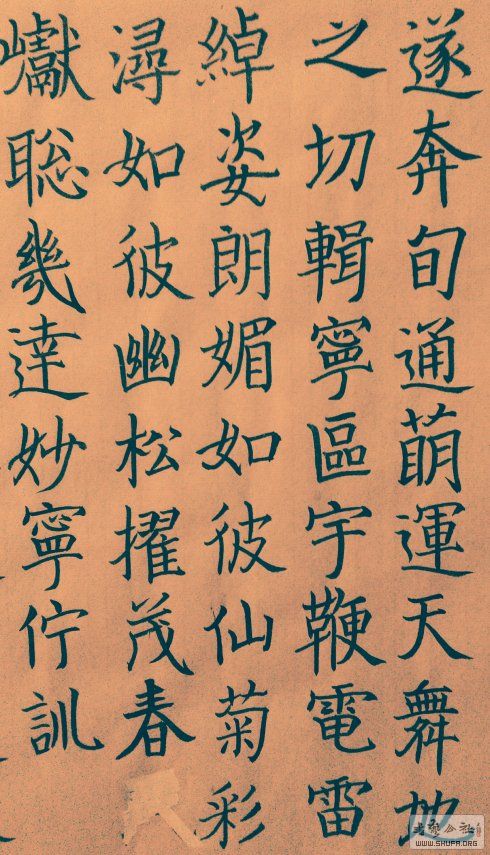 遂奔旬通萌運天舞地
之切輯寧區宇鞭電雷
綽姿朗媚如彼仙菊彩
潯如彼幽松擢茂春
巘聡幾達妙寧佇訓
WWW.SHUFA.ORG